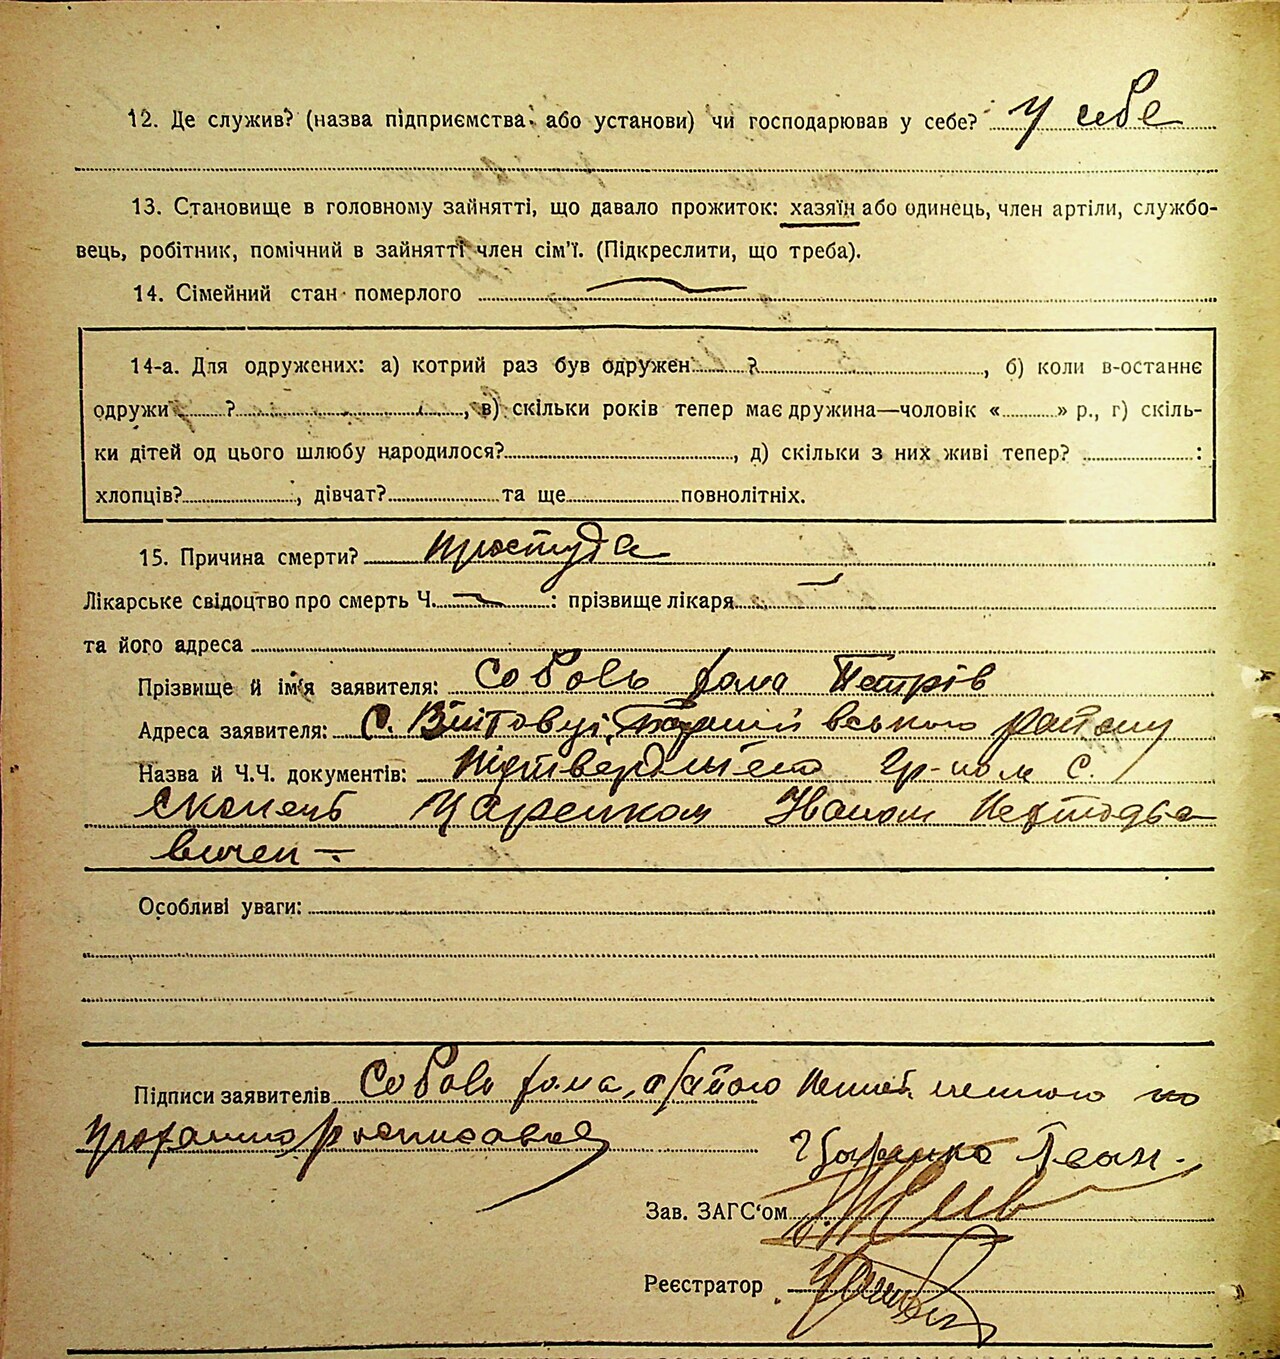 12. Де служив? (назва підприємства або установи) чи господарював у себе? у себе
13. Становище в головному зайнятті, що давало прожиток: хазяїн або одинець, член артіли, службо-
вець, робітник, помічний в зайнятті член сім’ї. (Підкреслити, що треба).
14. Сімейний стан померлого
14-а. Для одружених: а) котрий раз був одружен ?, б) коли в-останнє
одружи ?, в) скільки років тепер має дружина—чоловік «» р., г) скіль-
ки дітей од цього шлюбу народилося?, д) скільки з них живі тепер? :
хлопців?, дівчат? та ще повнолітніх.
15. Причина смерти? простуда
Лікарське свідоцтво про смерть Ч. : прізвище лікаря
та його адреса
Прізвище й ім’я заявителя: Соболь Фома Петрів
Адреса заявителя: С. Війтовці, району
Назва й Ч.Ч. документів: Підтверджено гр-ном С.
Скопець Царенком Іваном
вичем —
Особливі уваги:
Підписи заявителів Соболь Фома, а за його по
росписався Царенко Іван.
Зав. ЗАГС‘ом
Реєстратор